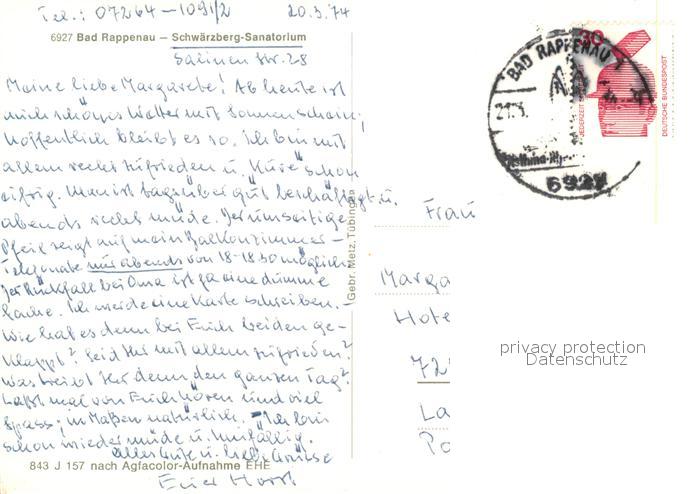 Tel.: 07264-1091/2 20.3.74
6927 Bad Rappenau – Schwärzberg-Sanatorium
Salinen Str. 28
Meine liebe Margarete! Ab heute ist
auch schönes Wetter mit Sonnenschein;
hoffentlich bleibt es so. Ich bin mit
allem recht zufrieden u. "Küre" schon
eifrig. Man ist tagsüber gut beschäftigt u.
abends recht müde. Der umseitige
Pfeil zeigt auf mein Balkonzimmer –
Telefonate nur abends von 18-18 30 möglich.
Der Rückfall bei Oma ist ja eine dumme
Sache. Ich werde eine Karte schreiben. –
Wie hat es denn bei Euch beiden ge-
klappt? Seid Ihr mit allem zufrieden?
Was treibt Ihr denn den ganzen Tag?
Laßt mal von Euch hören und viel
Spass; in Maßen natürlich. – Ich bin
schon wieder müde u.
Alles Gute u. liebe Grüsse
Euer Horst
843 J 157 nach Agfacolor-Aufnahme EHE
Gebr. Metz, Tübingen
30
JEDERZEIT
DEUTSCHE BUNDESPOST
BAD RAPPENAU
21.3.
6927
Frau
Marga
Hote
72
La
Po
privacy protection
Datenschutz